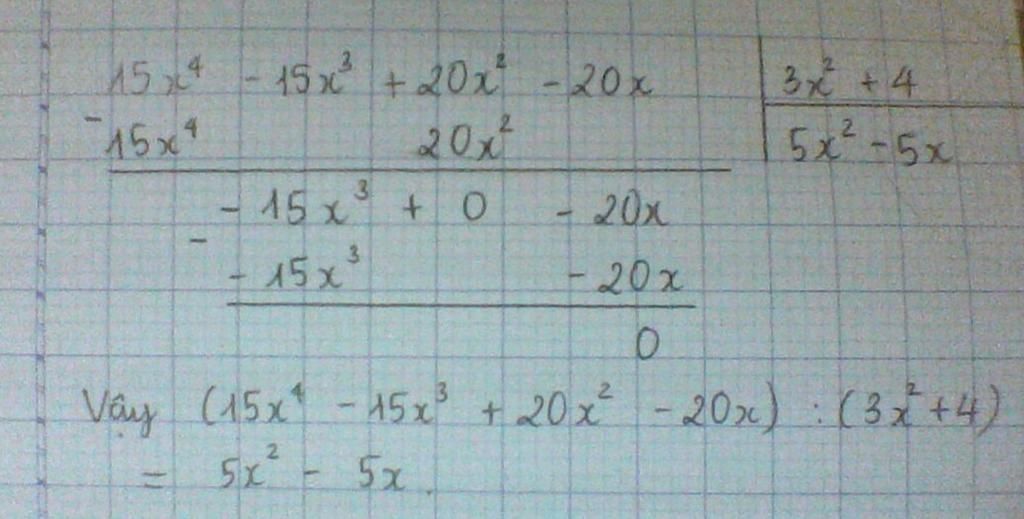 15x⁴ - 15x³ + 20x² - 20x | 3x² + 4
- 15x⁴ 20x² | 5x² - 5x
- 15x³ + 0 - 20x
- - 15x³ - 20x
0
Vậy (15x⁴ - 15x³ + 20x² - 20x) : (3x² + 4)
= 5x² - 5x.